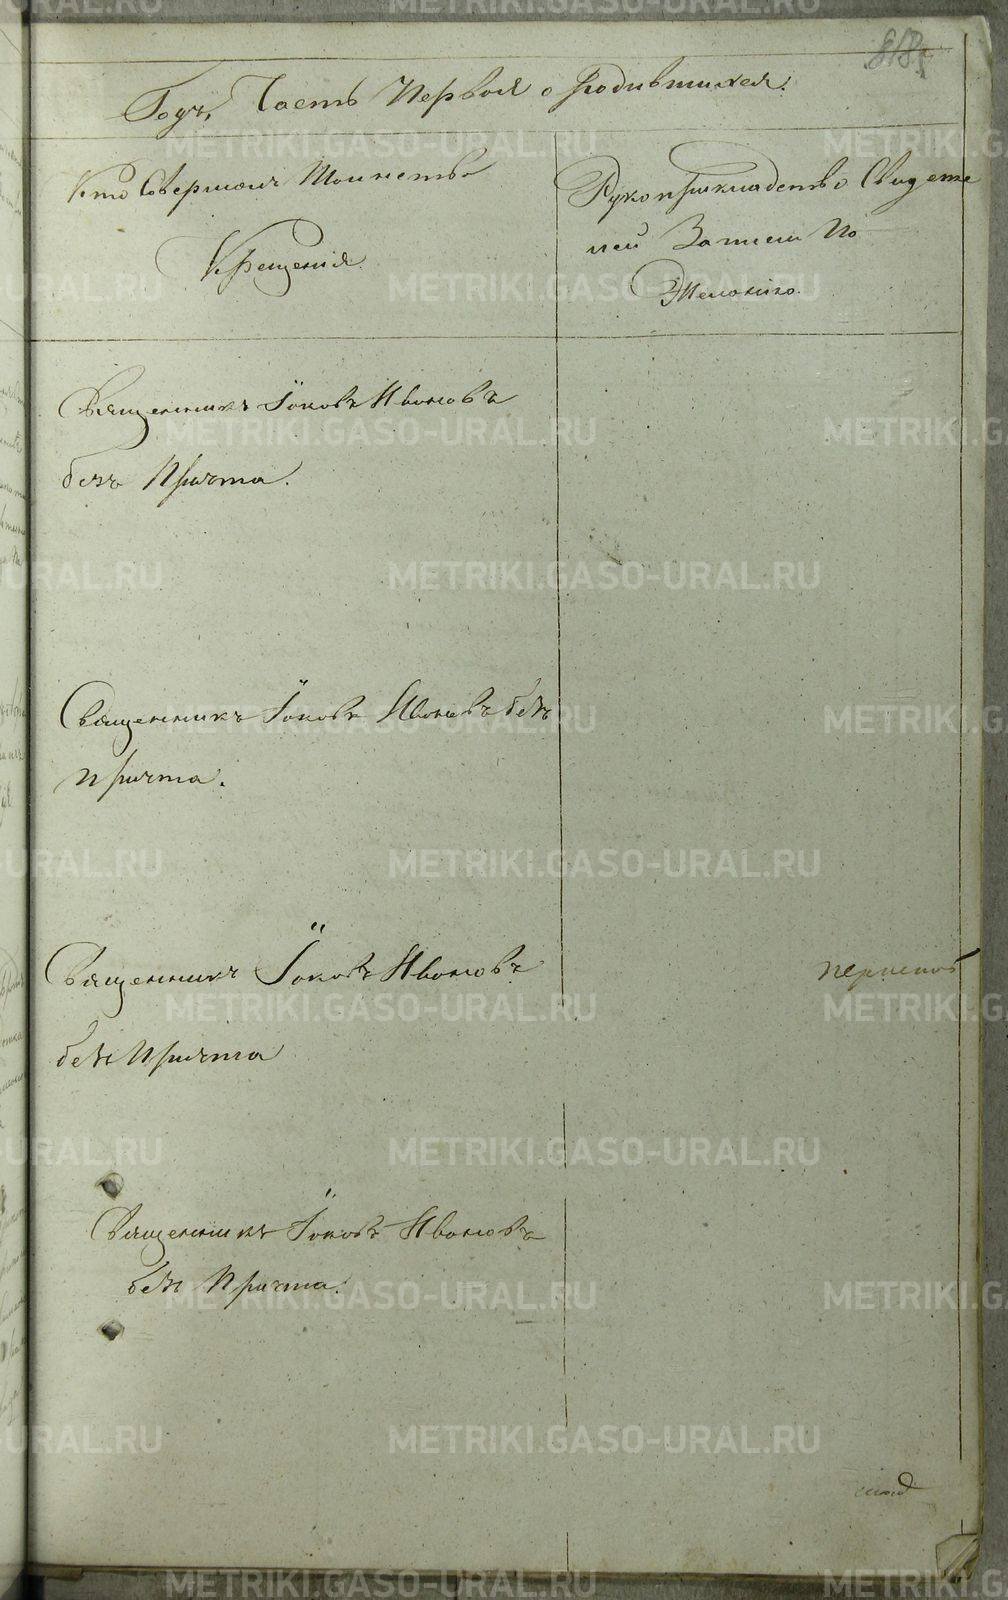 818
Годъ, Часть Первая о Родившихся.
Кто Совершалъ Таинство
Крещенія
Рукоприкладство Свидете
лей Записи По
Желанію.
Священникъ Іаковъ Ивановъ
безъ Причта.
Священникъ Іаковъ Ивановъ безъ
причта.
Священникъ Іаковъ Ивановъ
безъ Причта
Священникъ Іаковъ Ивановъ
безъ Причта.
METRIKI.GASO-URAL.RU